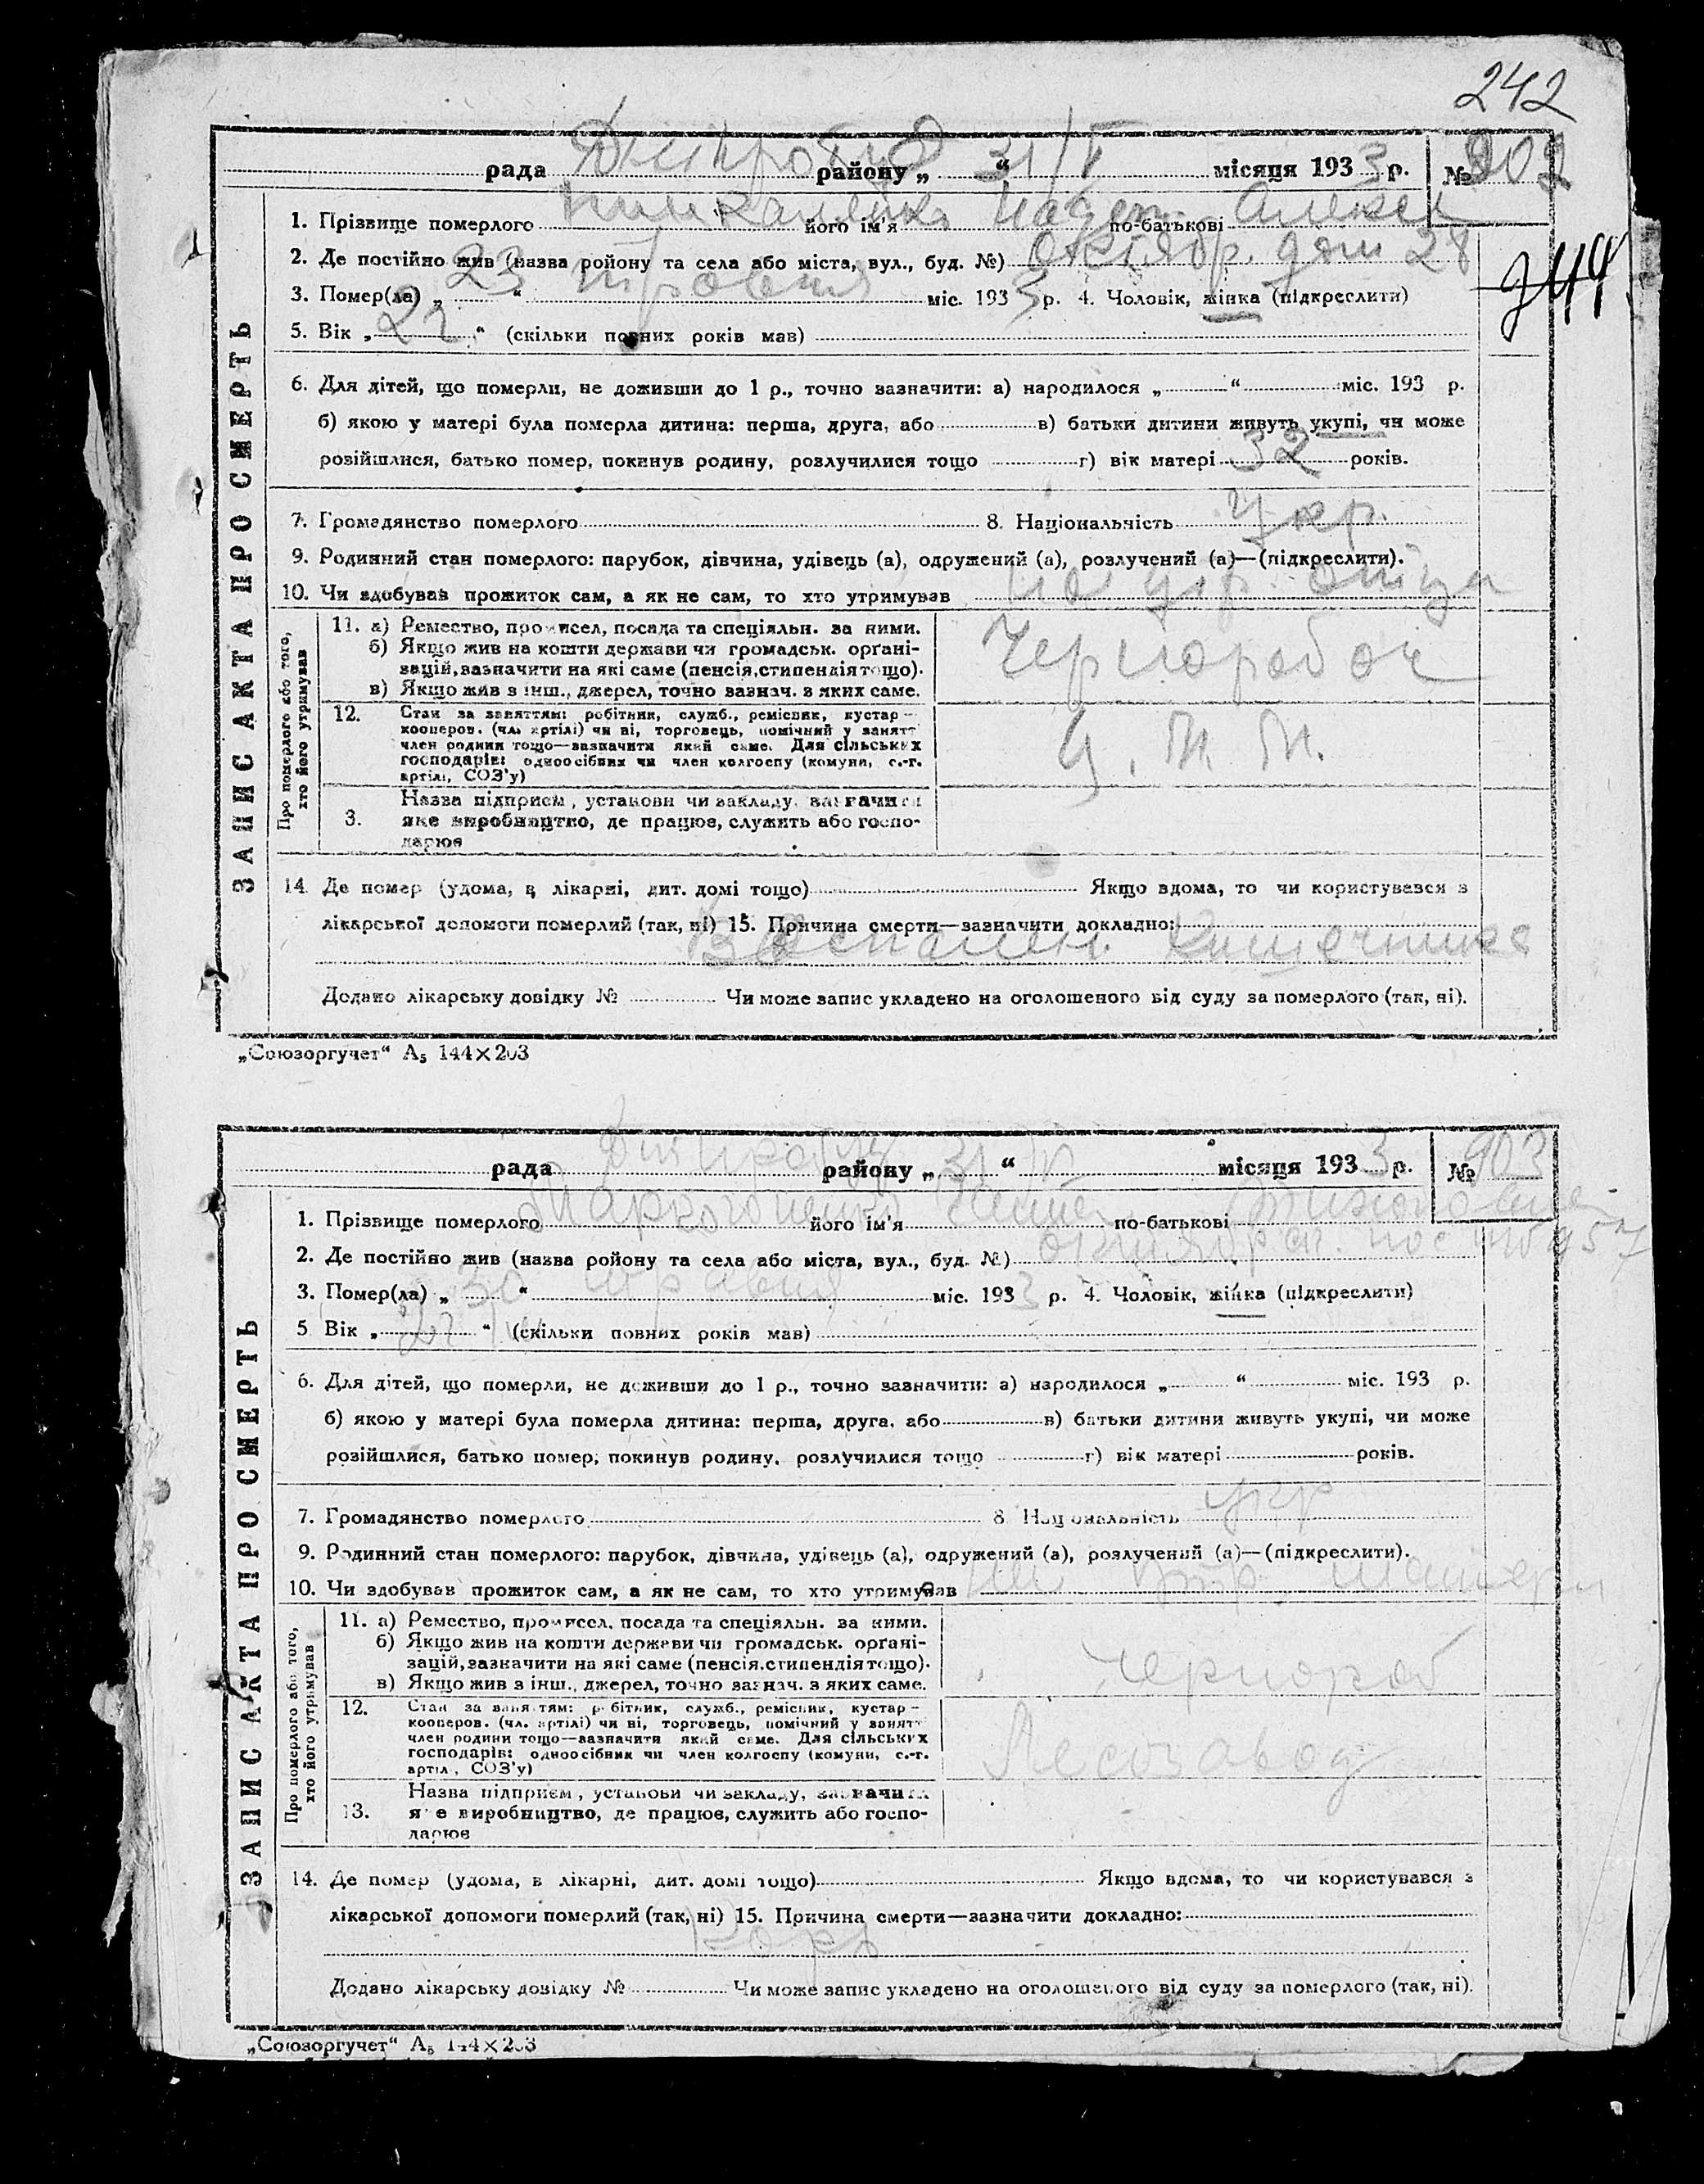 242
рада Дніпробуд району „ 31/V “ місяця 1933 р. № 902
1. Прізвище померлого його ім'я Надеж. по-батькові Алексе
2. Де постійно жив (назва ройону та села або міста, вул., буд. №) Октябр. дом 28
3. Помер(ла) „ 23 “ травня міс. 1933 р. 4. Чоловік, жінка (підкреслити)
244
5. Вік „ 2 г. “ (скільки повних років мав)
6. Для дітей, що померли, не доживши до 1 р., точно зазначити: а) народилося „ “ міс. 193 р.
б) якою у матері була померла дитина: перша, друга, або в) батьки дитини живуть укупі, чи може
розійшлися, батько помер, покинув родину, розлучилися тощо г) вік матері 32 років.
7. Громадянство померлого 8. Національність Укр.
9. Родинний стан померлого: парубок, дівчина, удівець (а), одружений (а), розлучений (а)—(підкреслити).
10. Чи здобував прожиток сам, а як не сам, то хто утримував на ижр. отца
ЗАПИС АКТА ПРО СМЕРТЬ
Про померлого або того,
хто його утримував
11. а) Ремество, промисел, посада та спеціяльн. за ними.
б) Якщо жив на кошти держави чи громадськ. орґані-
зацій, зазначити на які саме (пенсія, стипендія тощо).
в) Якщо жив з інш., джерел, точно зазнач. з яких саме.
Чернорабоч
12. Стан за заняттям: робітник, служб., ремісник, кустар-
кооперов. (чл. артілі) чи ні, торговець, помічний у занятт
член родини тощо—зазначити який саме. Для сільських
господарів: одноосібник чи член колгоспу (комуни, с.-г.
артілі, СОЗ'у)
Ц. М. М.
3. Назва підприєм, установи чи закладу, зазначити
яке виробництво, де працює, служить або госпо-
дарює
14. Де помер (удома, в лікарні, дит. домі тощо) Якщо вдома, то чи користувався з
лікарської допомоги померлий (так, ні) 15. Причина смерти—зазначити докладно:
Воспален. Кишечника
Додано лікарську довідку № Чи може запис укладено на оголошеного від суду за померлого (так, ні).
„Союзоргучет“ А₅ 144×203
рада району „ 31 “ місяця 1933 р. № 903
1. Прізвище померлого його ім'я по-батькові
2. Де постійно жив (назва ройону та села або міста, вул., буд. №) октябрск. пос
3. Помер(ла) „ 30 “ травня міс. 1933 р. 4. Чоловік, жінка (підкреслити)
5 Вік „ “ (скільки повних років мав)
6. Для дітей, що померли, не доживши до 1 р., точно зазначити: а) народилося „ “ міс. 193 р.
б) якою у матері була померла дитина: перша, друга, або в) батьки дитини живуть укупі, чи може
розійшлися, батько помер, покинув родину, розлучилися тощо г) вік матері років.
7. Громадянство померлого 8. Національність укр
9. Родинний стан померлого: парубок, дівчина, удівець (а), одружений (а), розлучений (а)—(підкреслити).
10. Чи здобував прожиток сам, а як не сам, то хто утримував матери
ЗАПИС АКТА ПРО СМЕРТЬ
Про померлого або того,
хто його утримував
11. а) Ремество, промисел, посада та спеціяльн. за ними.
б) Якщо жив на кошти держави чи громадськ. орґані-
зацій, зазначити на які саме (пенсія, стипендія тощо).
в) Якщо жив з інш., джерел, точно зазнач. з яких саме.
Чернораб
12. Стан за заняттям: робітник, служб., ремісник, кустар-
кооперов. (чл. артілі) чи ні, торговець, помічний у занятт
член родини тощо—зазначити який саме. Для сільських
господарів: одноосібник чи член колгоспу (комуни, с.-г.
артіл, СОЗ'у)
Лесозавод
13. Назва підприєм, установи чи закладу, зазначити
яке виробництво, де працює, служить або госпо-
дарює
14. Де помер (удома, в лікарні, дит. домі тощо) Якщо вдома, то чи користувався з
лікарської допомоги померлий (так, ні) 15. Причина смерти—зазначити докладно:
Корь
Додано лікарську довідку № Чи може запис укладено на оголошеного від суду за померлого (так, ні).
„Союзоргучет“ А₅ 144×203